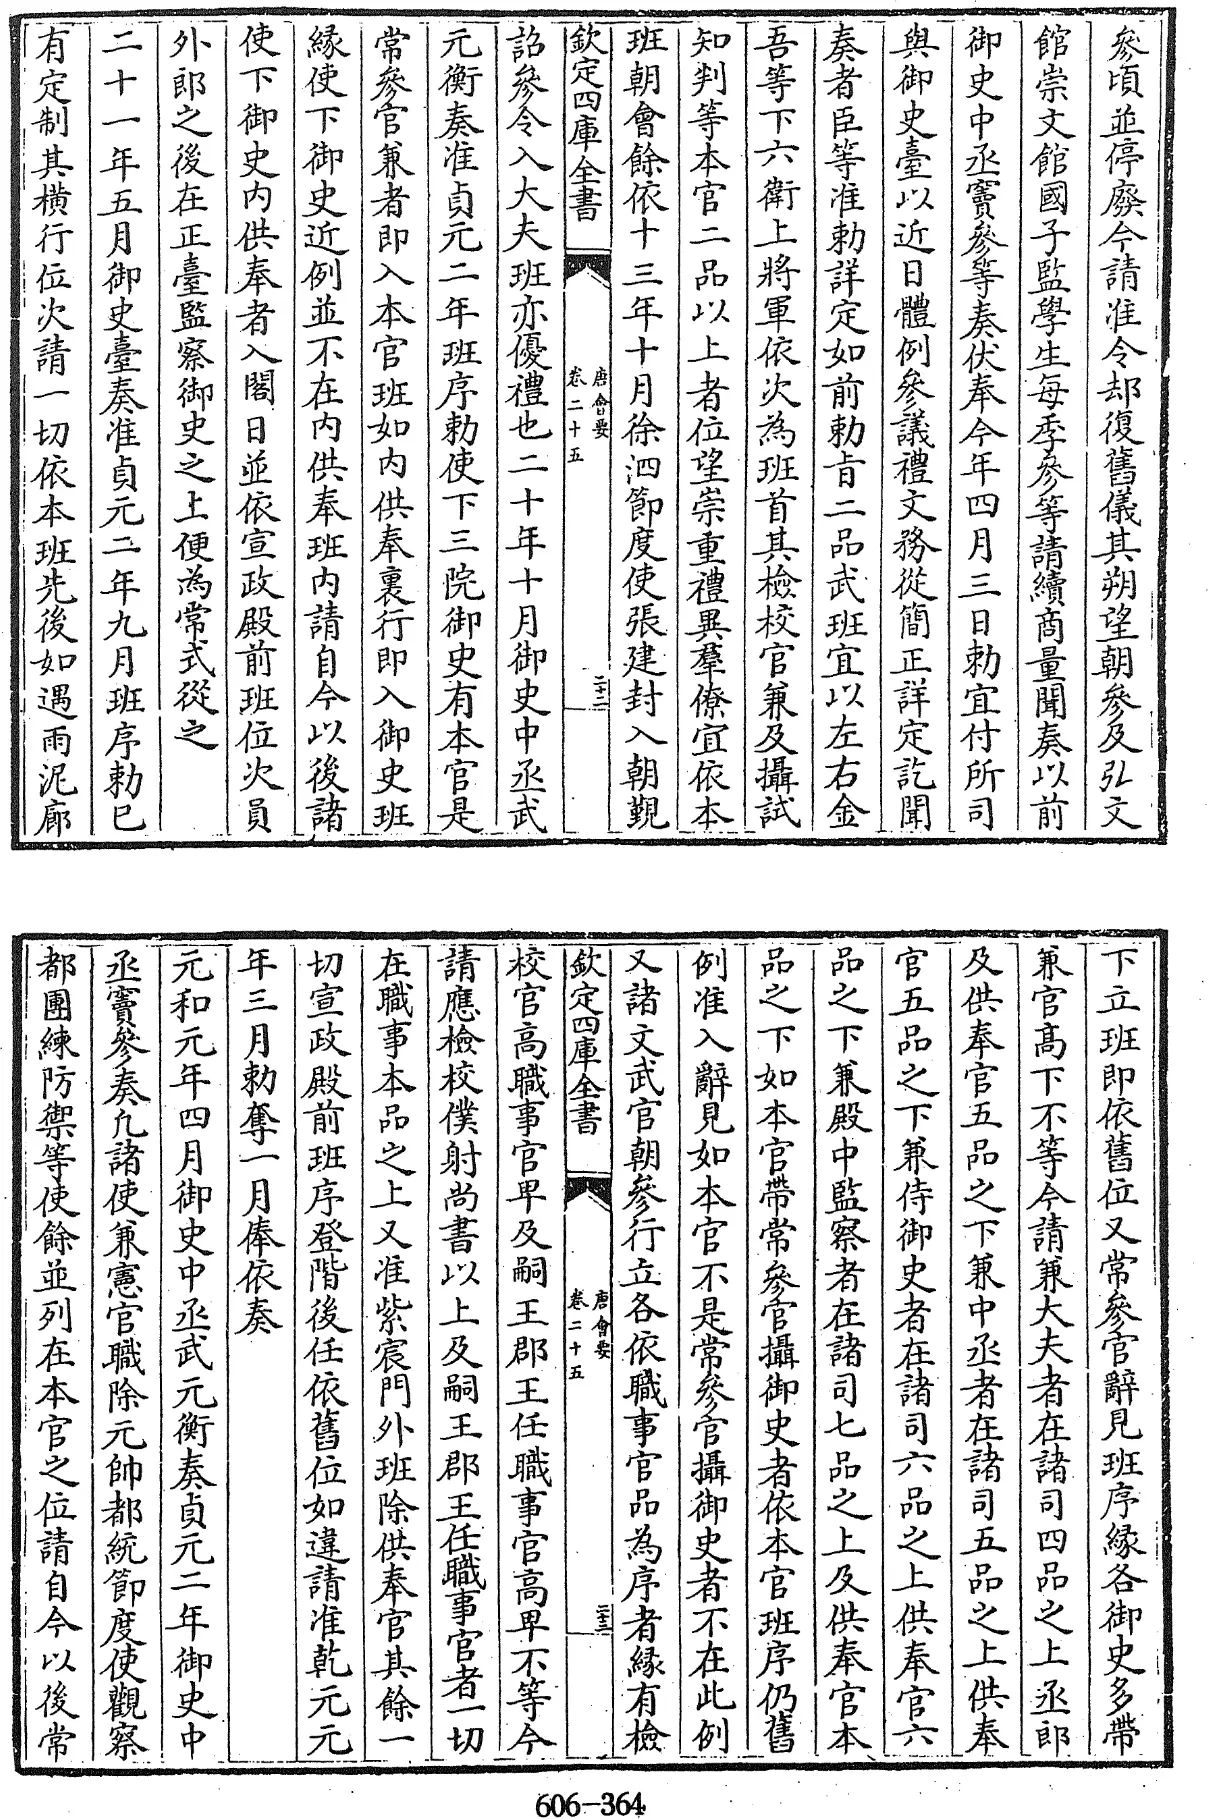 參頃並停廢今請准令却復舊儀其朔望朝參及弘文
館崇文館國子監學生每季參等請續商量聞奏以前
御史中丞竇參等奏伏奉今年四月三日勅宜付所司
與御史臺以近日體例參議禮文務從簡正詳定訖聞
奏者臣等准勅詳定如前勅旨二品武班宜以左右金
吾等下六衛上將軍依次為班首其檢校官兼及攝試
知判等本官二品以上者位望崇重禮異羣僚宜依本
班朝會餘依十三年十月徐泗節度使張建封入朝覲
欽定四庫全書
唐會要
卷二十五
二十二
詔參令入大夫班亦優禮也二十年十月御史中丞武
元衡奏准貞元二年班序勅使下三院御史有本官是
常參官兼者即入本官班如內供奉裏行即入御史班
緣使下御史近例並不在內供奉班內請自今以後諸
使下御史內供奉者入閤日並依宣政殿前班位次員
外郎之後在正臺監察御史之上便為常式從之
二十一年五月御史臺奏准貞元二年九月班序勅已
有定制其橫行位次請一切依本班先後如遇雨泥廊
下立班即依舊位又常參官辭見班序緣各御史多帶
兼官高下不等今請兼大夫者在諸司四品之上丞郎
及供奉官五品之下兼中丞者在諸司五品之上供奉
官五品之下兼侍御史者在諸司六品之上供奉官六
品之下兼殿中監察者在諸司七品之上及供奉官本
品之下如本官帶常參官攝御史者依本官班序仍舊
例准入辭見如本官不是常參官攝御史者不在此例
又諸文武官朝參行立各依職事官品為序者緣有檢
欽定四庫全書
唐會要
卷二十五
二十三
校官高職事官卑及嗣王郡王任職事官高卑不等今
請應檢校僕射尚書以上及嗣王郡王任職事官者一切
在職事本品之上又准紫宸門外班除供奉官其餘一
切宣政殿前班序登階後任依舊位如違請准乾元元
年三月勅奪一月俸依奏
元和元年四月御史中丞武元衡奏貞元二年御史中
丞竇參奏凡諸使兼憲官職除元帥都統節度使觀察
都團練防禦等使餘並列在本官之位請自今以後常
606-364